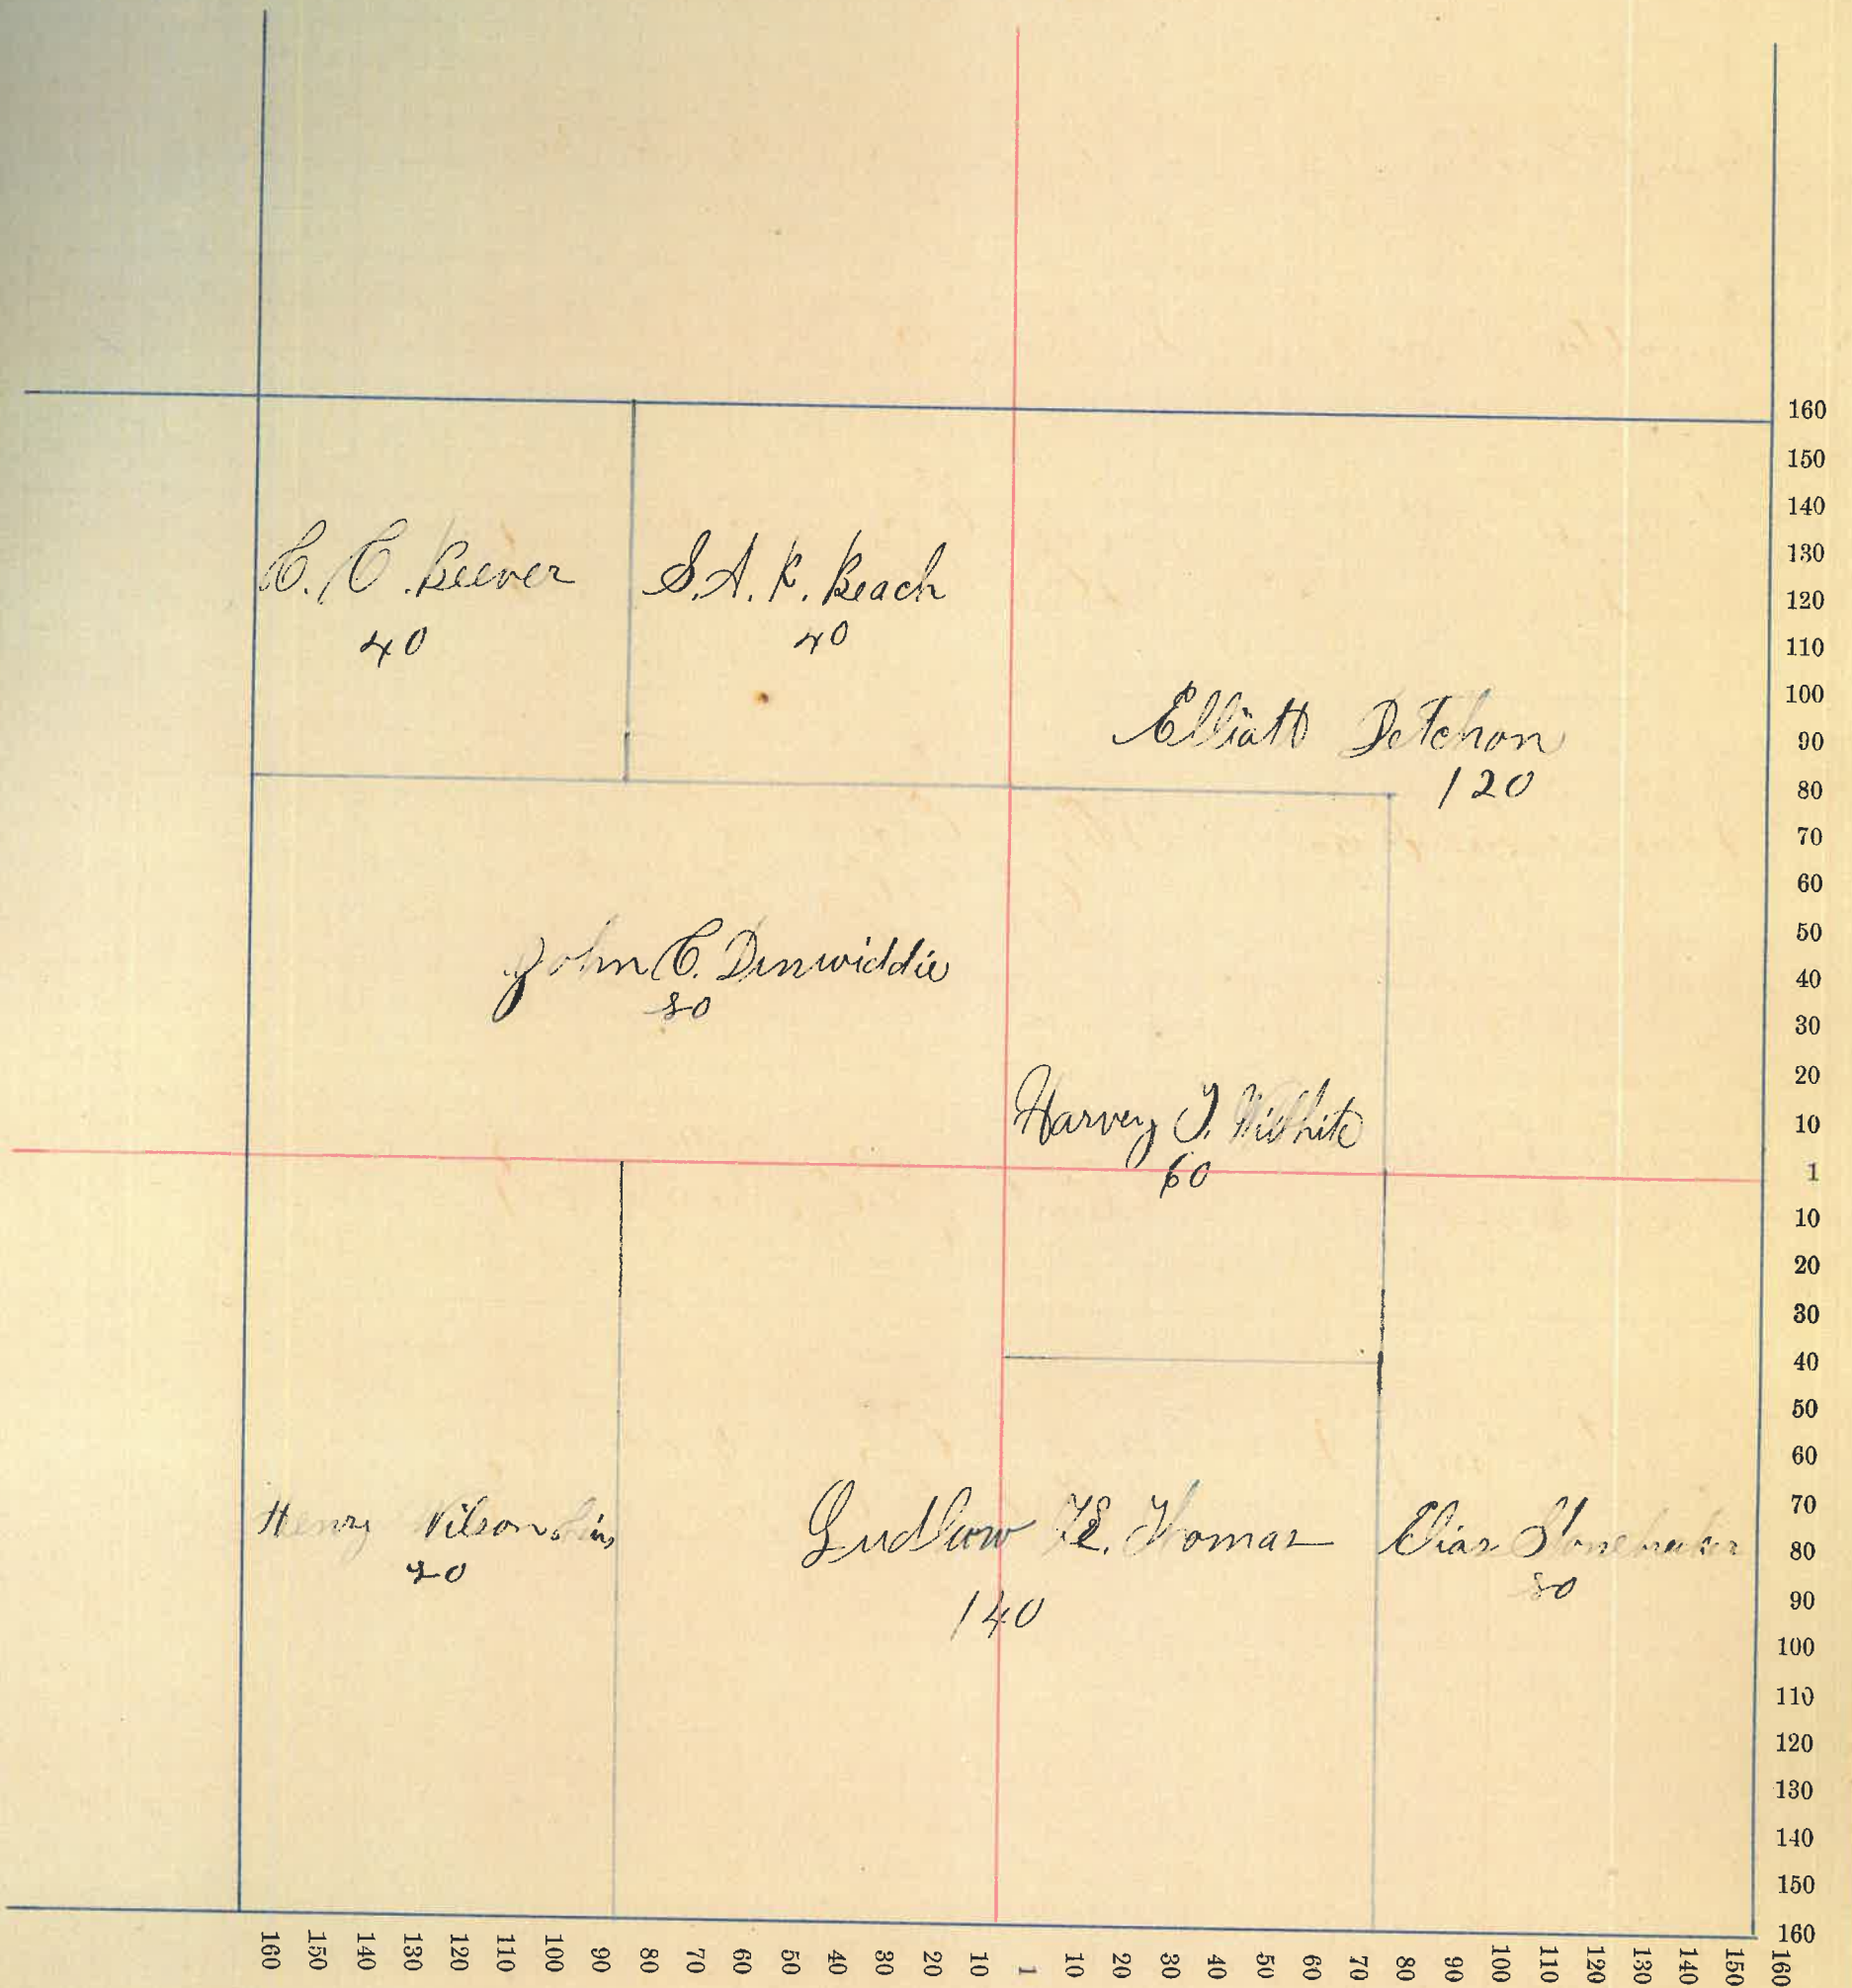 C. C. Beever
40
S. A. K. Beach
40
Elliott Detchon
120
John C. Dinwiddie
80
Harvey J. Wilhite
60
Henry Wilson
Ludlow E. Thomas
140
Elias Stonebraker
80
160
150
140
130
120
110
100
90
80
70
60
50
40
30
20
10
1
10
20
30
40
50
60
70
80
90
100
110
120
130
140
150
160
160 150 140 130 120 110 100 90 80 70 60 50 40 30 20 10 1 10 20 30 40 50 60 70 80 90 100 110 120 130 140 150 160